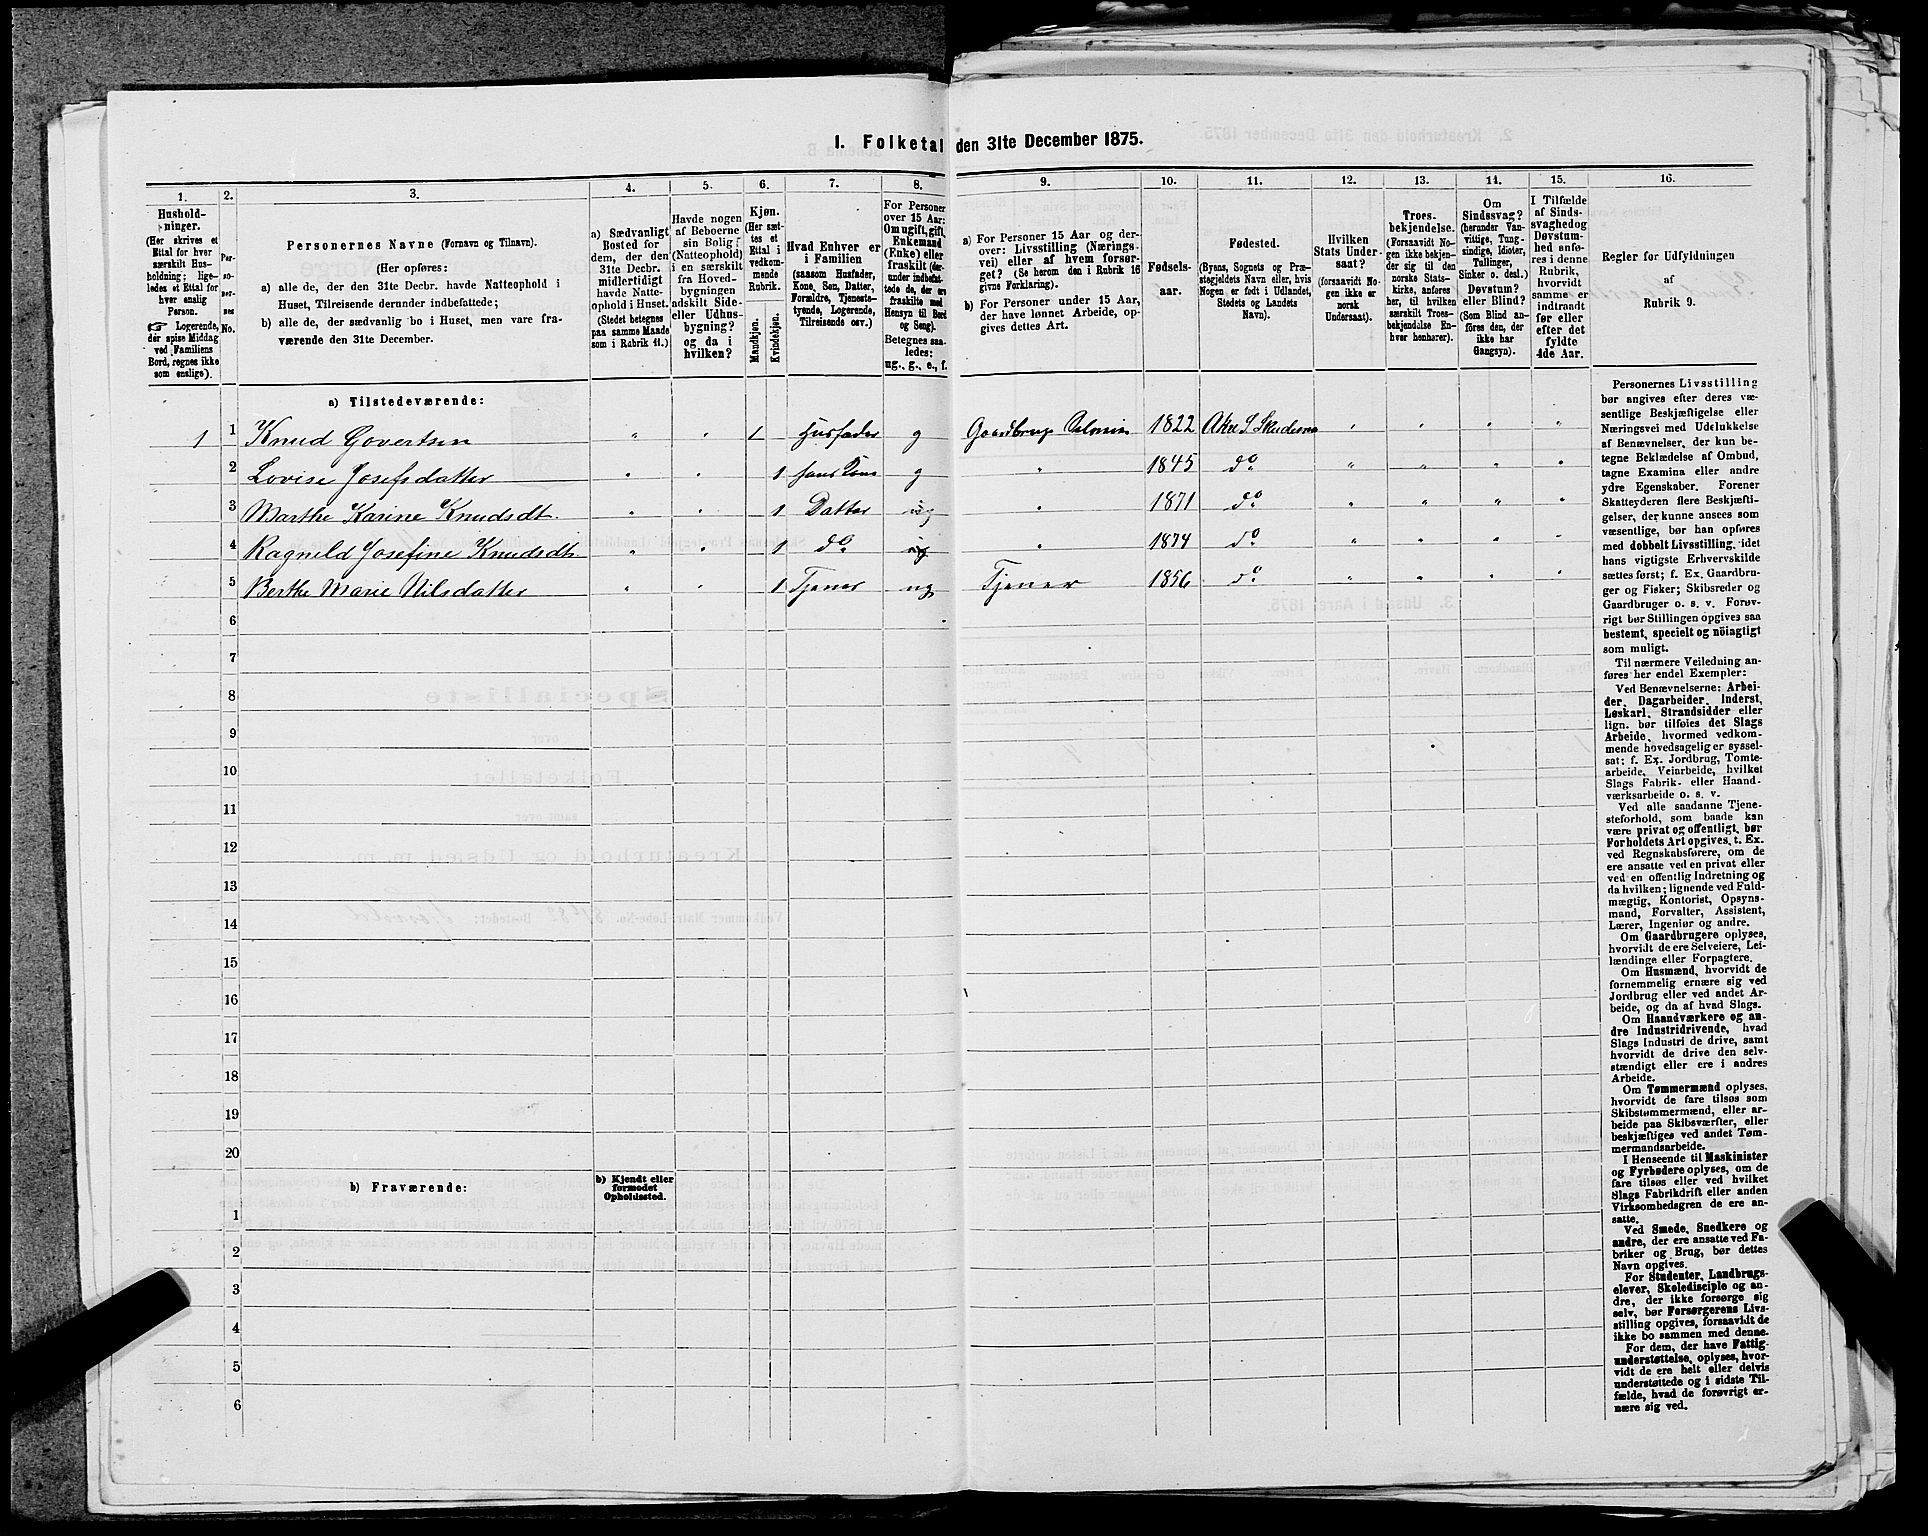 I. Folketal den 31te December 1875.
1.
Hushold-
ninger.
(Her skrives et
Ettal for hver
særskilt Hus-
holdning; lige-
ledes et Ettal for
hver enslig
Person.
☞ Logerende,
der spise Middag
ved Familiens
Bord, regnes ikke
som enslige).
2.
Per-
so-
ner-
nes
No.
3.
Personernes Navne (Fornavn og Tilnavn).
(Her opføres:
a) alle de, der den 31te Decbr. havde Natteophold i
Huset, Tilreisende derunder indbefattede;
b) alle de, der sædvanlig bo i Huset, men vare fra-
værende den 31te December.
4.
a) Sædvanligt
Bosted for
dem, der den
31te Decbr.
midlertidigt
havde Natte-
ophold i Huset.
(Stedet betegnes
paa samme Maade
som i Rubrik 11.)
5.
Havde nogen
af Beboerne
sin Bolig
(Natteophold)
i en særskilt
fra Hoved-
bygningen
adskilt Side-
eller Udhus-
bygning?
og da i
hvilken?
6.
Kjøn.
(Her sæt-
tes et
Ettal i
vedkom-
mende
Rubrik.
Mandkjøn.
Kvindekjøn.
7.
Hvad Enhver er
i Familien
(saasom Husfader,
Kone, Søn, Datter,
Forældre, Tjeneste-
tyende, Logerende,
Tilreisende osv.)
8.
For Personer
over 15 Aar:
Om ugift, gift,
Enkemand
(Enke) eller
fraskilt (der-
under indbefat-
tede de, der ere
fraskilte med
Hensyn til Bord
og Seng).
Betegnes saa-
ledes:
ug., g., e., f.
9.
a) For Personer 15 Aar og der-
over: Livsstilling (Nærings-
vei) eller af hvem forsør-
get? (Se herom den i Rubrik 16
givne Forklaring).
b) For Personer under 15 Aar,
der have lønnet Arbeide, op-
gives dettes Art.
10.
Fødsels-
aar.
11.
Fødested.
(Byens, Sognets og Præ-
stegjeldets Navn eller, hvis
Nogen er født i Udlandet,
Stedets og Landets
Navn).
12.
Hvilken
Stats Under-
saat?
(forsaavidt No-
gen ikke er
norsk
Undersaat).
13.
Troes-
bekjendelse.
(Forsaavidt No-
gen ikke bekjen-
der sig til den
norske Stats-
kirke, anføres
her, til hvilken
særskilt Troes-
bekjendelse En-
hver henhører).
14.
Om
Sindssvag?
(herunder Van-
vittige, Tung-
sindige, Idioter,
Tullinger,
Sinker o. desl.)
Døvstum?
eller Blind?
(Som Blind an-
føres den, der
ikke har
Gangsyn).
15.
I Tilfælde
af Sinds-
svaghed og
Døvstum-
hed anfø-
res i denne
Rubrik,
hvorvidt
samme er
indtraadt
før eller
efter det
fyldte
4de Aar.
16.
Regler for Udfyldningen
af
Rubrik 9.
a) Tilstedeværende:
1 1 Knud Govertsen " " 1 Husfader g Gaardbrug 1822 " " " "
2 Lovise Josefsdatter " " 1 hans Kone g " 1845 do " " " "
3 Marthe Karine Knudsdt. " " 1 Datter ug " 1871 do " " " "
4 Ragnild Josefine Knudsdt. " " 1 do ug " 1874 do " " " "
5 Berthe Marie Nilsdatter " " 1 Tjener ug Tjener 1856 do " " " "
6
7
8
9
10
11
12
13
14
15
16
17
18
19
20
b) Fraværende:
b) Kjendt eller
formodet
Opholdssted.
1
2
3
4
5
6
Personernes Livsstilling
bør angives efter deres væ-
sentlige Beskjæftigelse eller
Næringsvei med Udelukkelse
af Benævnelser, der kun be-
tegne Bekladelse af Ombud,
tagne Examina eller andre
ydre Egenskaber. Forener
Skatteyderen flere Beskjæfti-
gelser, der kunne ansees som
væsentlige, bør han opføres
med dobbelt Livsstilling, idet
hans vigtigste Erhvervskilde
sættes først; f. Ex. Gaardbru-
ger og Fisker; Skibsreder og
Gaardbruger o. s. v. Forøv-
rigt bør Stillingen opgives saa
bestemt, specielt og nöiagtigt
som muligt.
Til nærmere Veiledning an-
føres her endel Exempler:
Ved Benævnelserne: Arbei-
der, Dagarbeider, Inderst,
Løskarl, Strandsidder eller
lign. bør tilføies det Slags
Arbeide, hvormed vedkom-
mende hovedsagelig er syssel-
sat; f. Ex. Jordbrug, Tomte-
arbeide, Veiarbeide, hvilket
Slags Fabrik- eller Haand-
værksarbeide o. s. v.
Ved alle saadanne Tjene-
steforhold, som baade kan
være privat og offentligt, bør
Forholdets Art opgives, t. Ex.
ved Regnskabsførere, om de
ere ansatte ved en privat eller
ved en offentlig Indretning og
da hvilken; lignende ved Fuld-
mægtig, Kontorist, Opsyns-
mand, Forvalter, Assistent,
Lærer, Ingeniør og andre.
Om Gaardbrugere oplyses,
hvorvidt de ere Selveiere, Lei-
lændinge eller Forpagtere.
Om Husmænd, hvorvidt de
fornemmelig ernære sig ved
Jordbrug eller ved andet Ar-
beide, og da af hvad Slags.
Om Haandværkere og an-
dre Industridrivende, hvad
Slags Industri de drive, samt
hvorvidt de drive den selv-
stændigt eller ere i andres
Arbeide.
Om Tømmermænd oplyses,
hvorvidt de fare tilsøs som
Skibstømmermænd, eller ar-
beide paa Skibsværfter, eller
beskjæftiges ved andet Tøm-
mermandsarbeide.
I Henseende til Maskinister
og Fyrbødere oplyses, om de
fare tilsøs eller ved hvilket
Slags Fabrikdrift eller anden
Virksomhedsgren de ere an-
satte.
Ved Smede, Snedkere og
andre, der ere ansatte ved Fa-
briker og Brug, bør dettes
Navn opgives.
For Studenter, Landbrugs-
elever, Skoledisciple og an-
dre, der ikke forsørge sig
selv, bør Forsørgerens Livs-
stilling opgives, forsaavidt de
ikke bo sammen med denne.
For dem, der have Fattig-
understøttelse, oplyses, hvor-
vidt de ere helt eller delvis
understøttede og i sidste Til-
fælde, hvad de forøvrigt er-
nære sig ved.